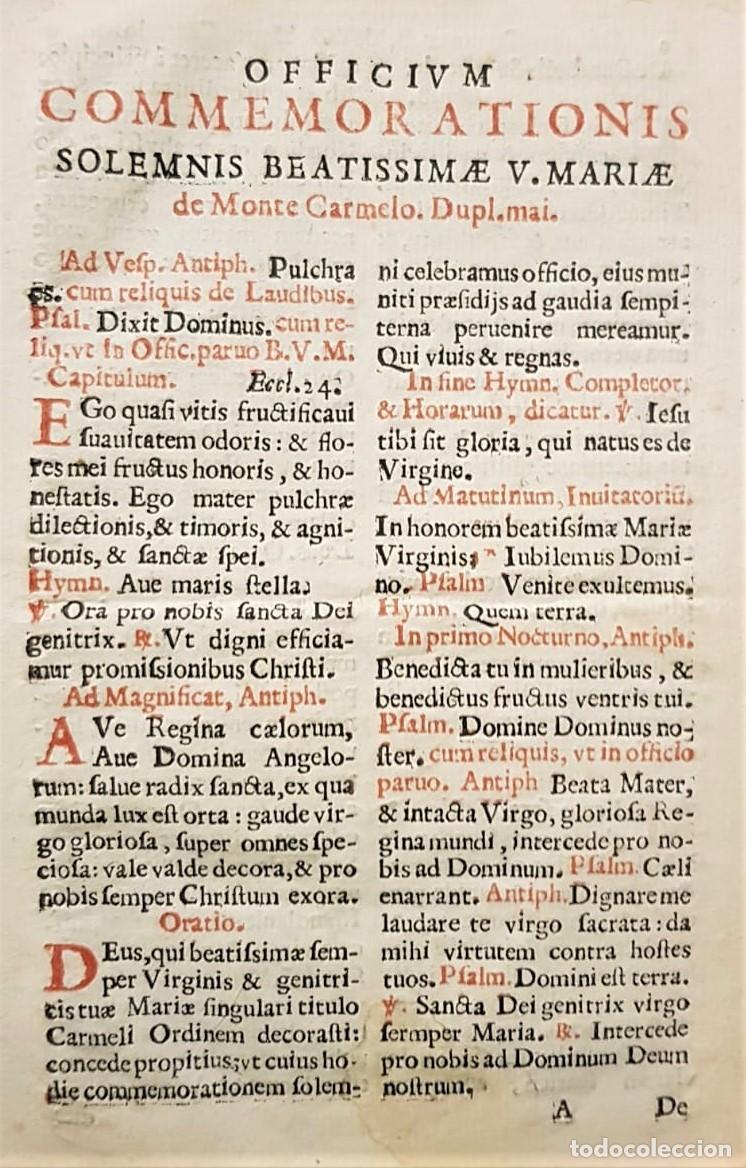 OFFICIVM
COMMEMORATIONIS
SOLEMNIS BEATISSIMÆ V. MARIÆ
de Monte Carmelo. Dupl. mai.
Ad Veſp. Antiph. Pulchra
es. cum reliquis de Laudibus.
Pſal. Dixit Dominus. cum re-
liq. vt in Offic. paruo B. V. M.
Capitulum. Eccl. 24.
EGo quaſi vitis fructificaui
ſuauitatem odoris: & flo-
res mei fructus honoris, & ho-
neſtatis. Ego mater pulchræ
dilectionis, & timoris, & agni-
tionis, & ſanctæ ſpei.
Hymn. Aue maris ſtella.
℣. Ora pro nobis ſancta Dei
genitrix. ℟. Vt digni efficia-
mur promiſsionibus Chriſti.
Ad Magnificat, Antiph.
AVe Regina cælorum,
Aue Domina Angelo-
rum: ſalue radix ſancta, ex qua
munda lux eſt orta: gaude vir-
go glorioſa, ſuper omnes ſpe-
cioſa: vale valde decora, & pro
nobis ſemper Chriſtum exora.
Oratio.
DEus, qui beatiſsimæ ſem-
per Virginis & genitri-
cis tuæ Mariæ ſingulari titulo
Carmeli Ordinem decoraſti:
concede propitius; vt cuius ho-
die commemorationem ſolem-
ni celebramus officio, eius mu-
niti præſidijs ad gaudia ſempi-
terna peruenire mereamur.
Qui viuis & regnas.
In fine Hymn. Completor.
& Horarum, dicatur. ℣. Ieſu
tibi ſit gloria, qui natus es de
Virgine.
Ad Matutinum, Inuitatoriū.
In honorem beatiſsimæ Mariæ
Virginis; * Iubilemus Domi-
no. Pſalm Venite exultemus.
Hymn. Quem terra.
In primo Nocturno, Antiph.
Benedicta tu in mulieribus, &
benedictus fructus ventris tui.
Pſalm. Domine Dominus no-
ſter. cum reliquis, vt in officio
paruo. Antiph Beata Mater,
& intacta Virgo, glorioſa Re-
gina mundi, intercede pro no-
bis ad Dominum. Pſalm. Cæli
enarrant. Antiph. Dignare me
laudare te virgo ſacrata: da
mihi virtutem contra hoſtes
tuos. Pſalm. Domini eſt terra.
℣. Sancta Dei genitrix virgo
ſermper Maria. ℟. Intercede
pro nobis ad Dominum Deum
noſtrum.
A De
todocoleccion